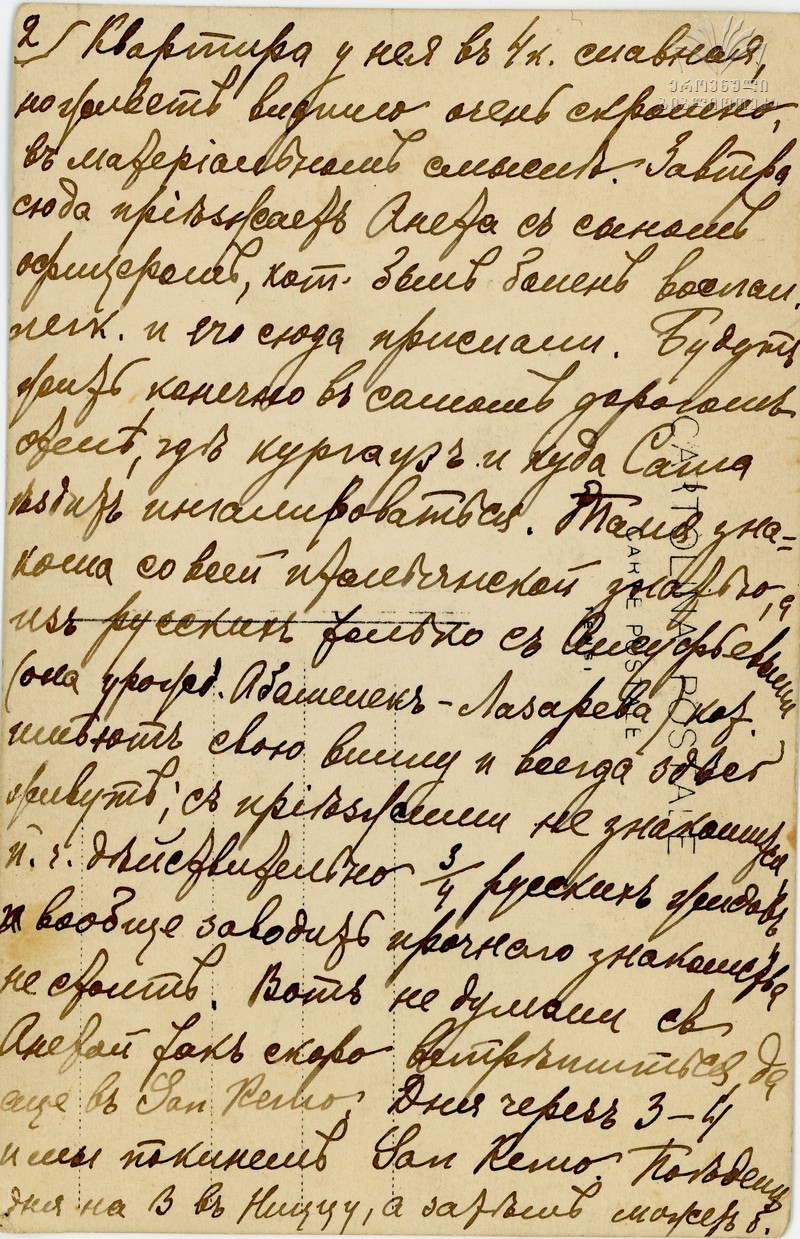 2) Квартира у нея въ 4 к. славная,
но живетъ видимо очень скромно,
въ матеріальномъ смыслѣ. Завтра
сюда пріѣзжаетъ Анета съ сыномъ
офицеромъ, кот. былъ боленъ воспал.
легк. и его сюда прислали. Будутъ
жить конечно въ самомъ дорогомъ
отелѣ, гдѣ кургаузъ и куда Саша
ѣздитъ ингалироваться. Тамъ зна=
кома со всей итальянской знатью, а
изъ русскихъ только съ
(она урожд. Абамелекъ-Лазарева) кот.
имѣютъ свою виллу и всегда здѣсь
живутъ; съ пріѣзжими не знакомится
п. ч. дѣйствительно 3/4 русскихъ жидовъ
и вообще заводить прочнаго знакомства
не стоитъ. Вотъ не думали съ
Анетой такъ скоро встрѣтиться, да
еще въ San Remo. Дня черезъ 3-4
и мы покинемъ San Remo. Поѣдемъ
дня на 3 въ Ниццу, а затѣмъ можетъ б.
CARTOLINA POSTALE
CARTE POSTALE
ეროვნული
ბიბლიოთეკა